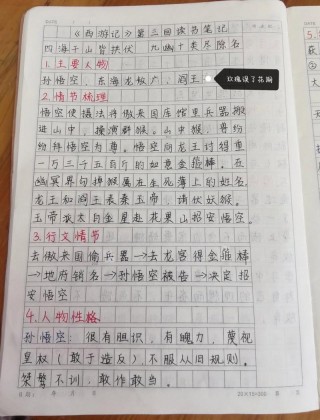 《西游记》第三回读书笔记
四海千山皆拱伏 九幽十类尽除名
1.主要人物
孙悟空，东海龙王敖广，阎王
玫瑰误了花期
2.情节梳理
孙悟空使摄法将傲来国库馆里兵器搬
进山中，操演群猴。山中猴、兽纷
纷待悟空为尊。悟空向龙王讨得重
一万三千五百斤的如意金箍棒。在
幽冥界勾掉猴属在生死簿上的姓名。
龙王和阎王表奏玉帝，请伏妖猴。
玉帝派太白金星赴花果山招安悟空
3.行文情节
去傲来国偷兵器→去龙宫得金箍棒
→地府销名→孙悟空被告→决定招
安悟空
4.人物性格
孙悟空：很有胆识，有魄力，蔑视
皇权（敢于造反），不服从旧规则。
桀骜不训，敢作敢当。